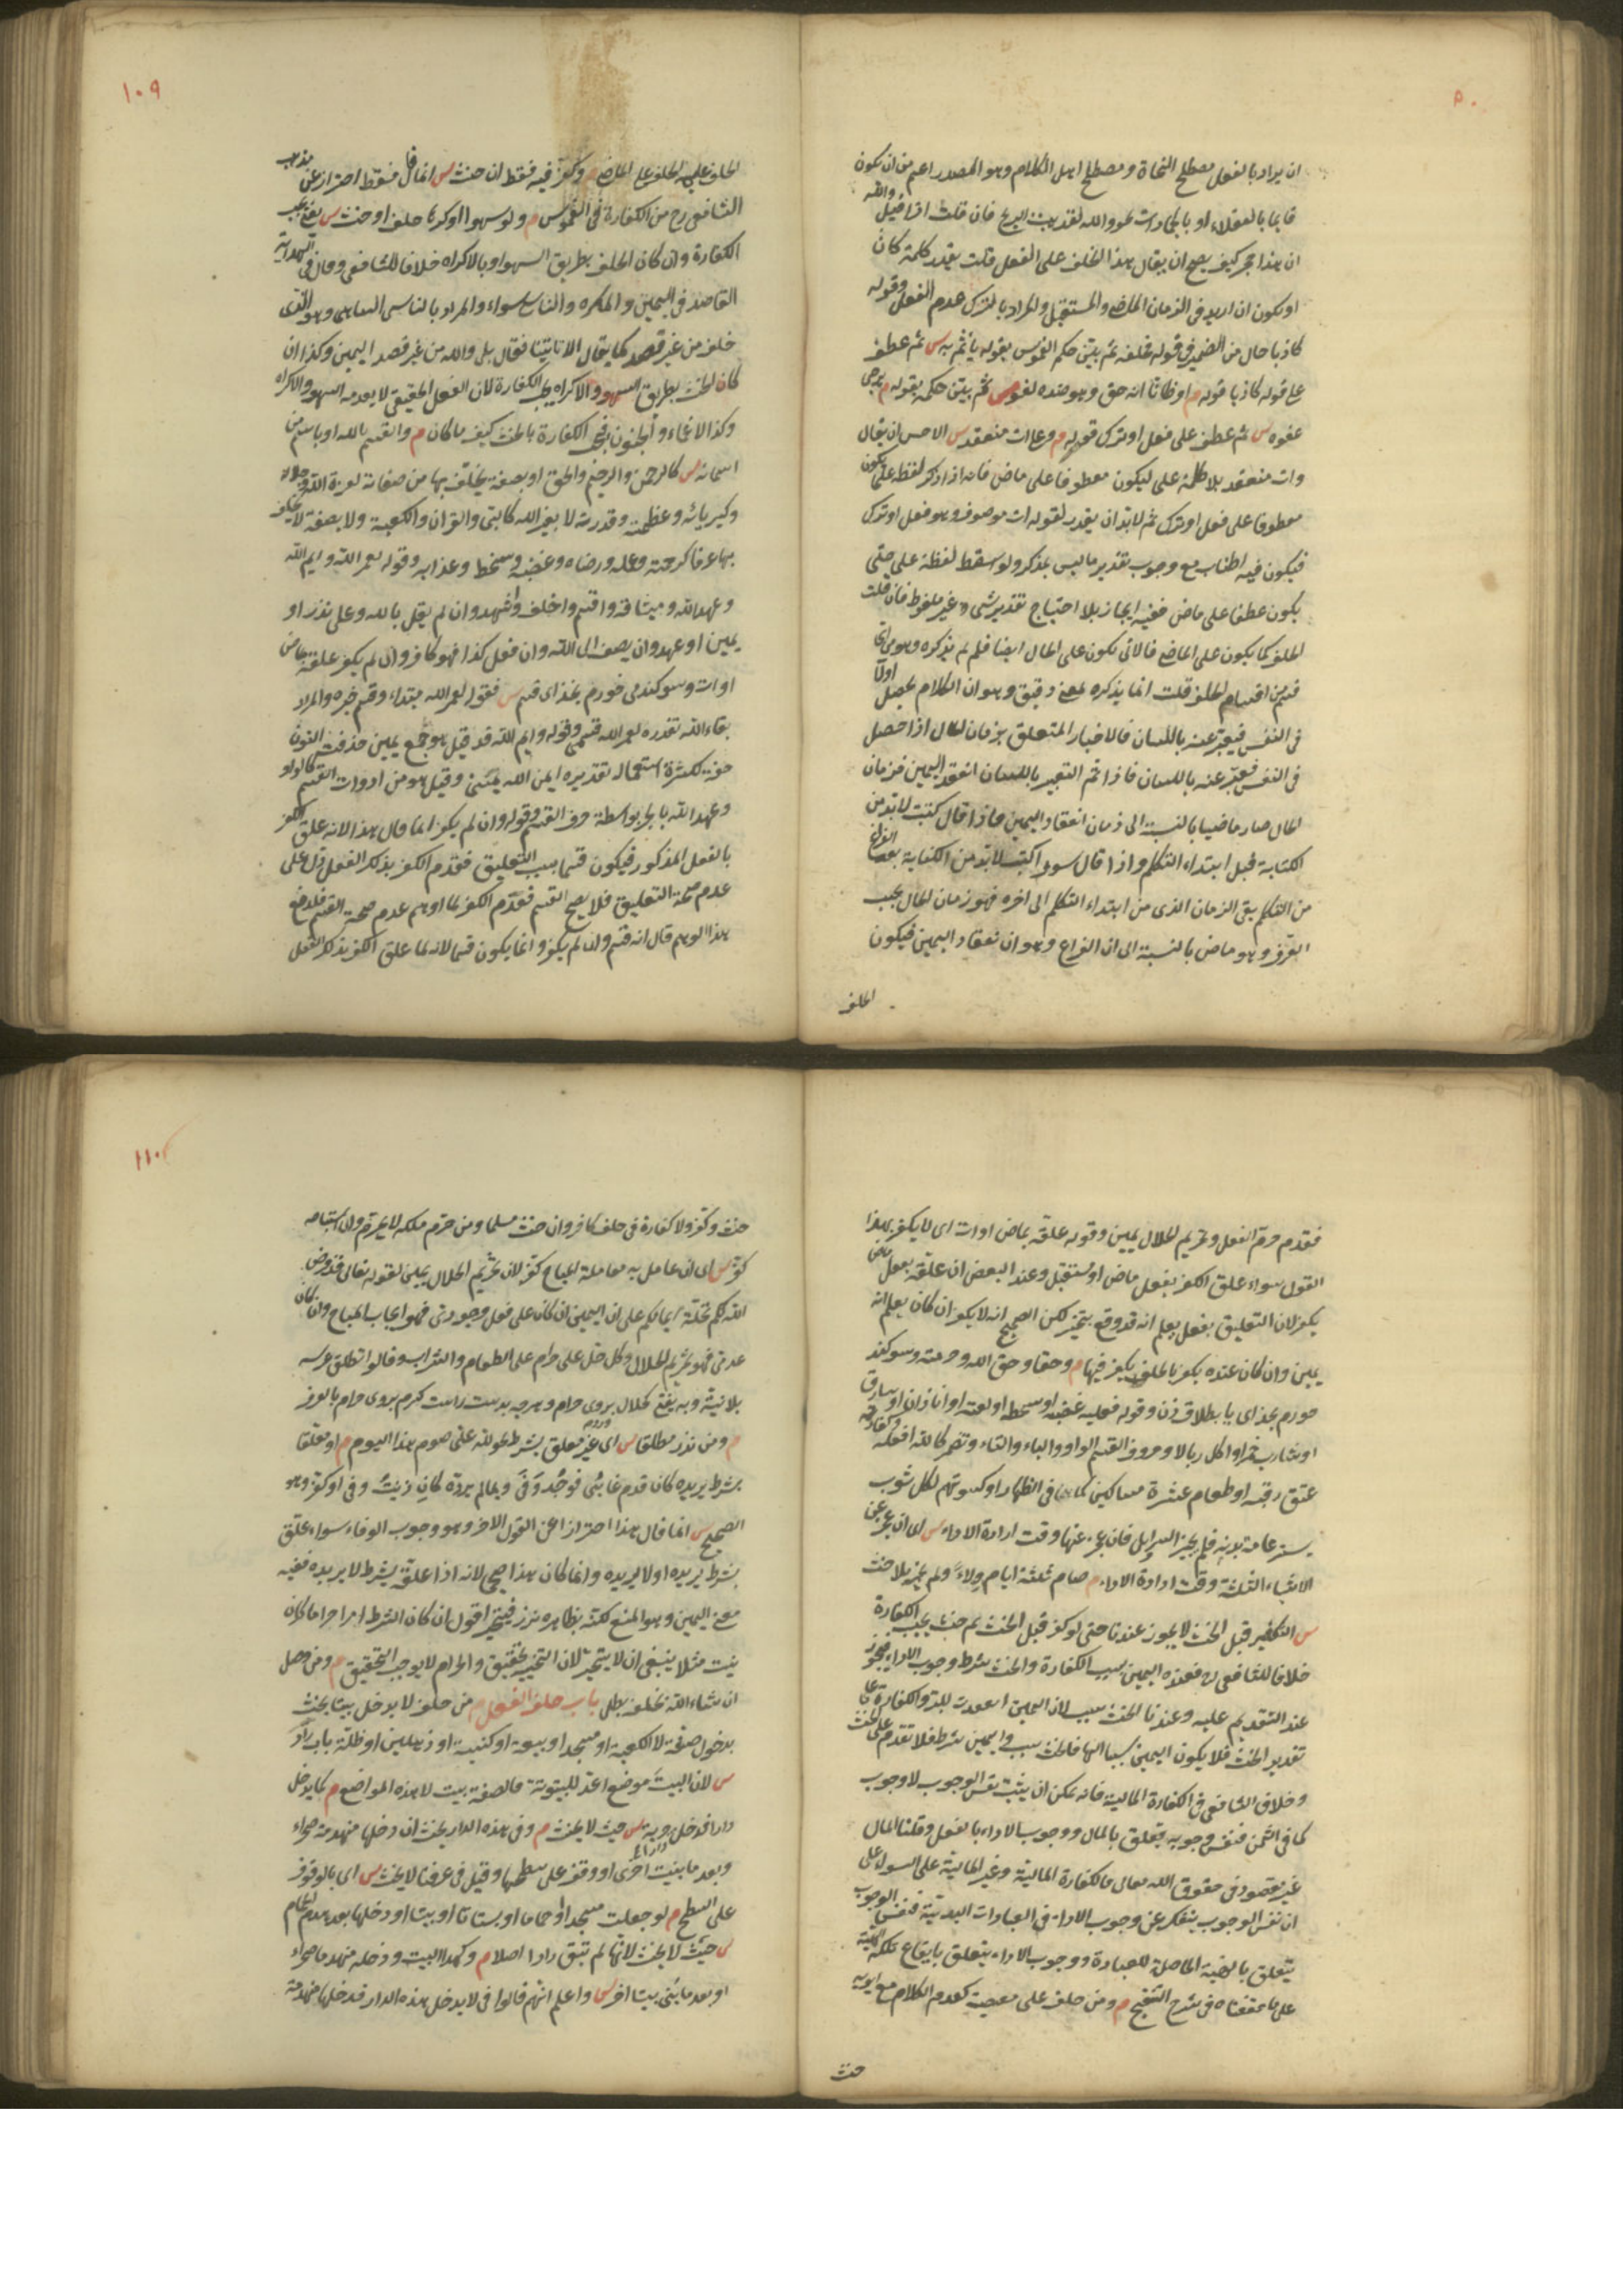 ٥٠
ان يراد بالفعل مصطلح النحاة ومصطلح اهل الكلام وهو المصدر اعم من ان يكون
قايما بالعقلاء او بالجمادات نحو والله لقد هبت الريح فان قلت اذا قيل والله
ان هذا حجر كيف يصح ان يقال هذا الحلف على الفعل قلت يقدر كلمة كان
او يكون ان اريد في الزمان الماضي والمستقبل والمراد بالترك عدم الفعل وقوله
كاذبا حال من الضمير في قوله فحلفه ثم بيّن حكم الغموس بقوله يأثم به س ثم عطف
على قوله كاذبا قوله م او ظانا انه حق وهو ضده لغو س ثم بيّن حكمه بقوله م يرجى
عفوه س ثم عطف على فعل او ترك قوله م وعلى ات منعقد س الاحسن ان يقال
وات منعقد بلا كلمة على ليكون معطوفا على ماض فانه اذا ذكر لفظ على يكون
معطوفا على فعل او ترك ثم لابد ان يقدر لقوله ات موصوف وهو فعل او ترك
فيكون فيه اطناب مع وجوب تقدير ما ليس بمذكر ولو اسقط لفظة على حتى
يكون عطفا على ماض ففيه ايجاز بلا احتياج تقدير شيء غير ملفوظ فان قلت
الحلف كما يكون على الماضي فالاتي يكون على الحال ايضا فلم لم يذكره وهو من اي
قسم من اقسام الحلف قلت انما يذكره لمعنى دقيق وهو ان الكلام يحصل اولا
في النفس فيعبر عنه باللسان فالاخبار المتعلق بزمان الحال اذا حصل
في النفس فعبر عنه باللسان فاذا تم التعبير باللسان انعقد اليمين فزمان
الحال صار ماضيا بالنسبة الى زمان انعقاد اليمين فاذا قال كتبت لابد من
الكتابة قبل ابتداء التكلم واذا قال سوف اكتب لابد من الكتابة بعد الفراغ
من التكلم بقى الزمان الذى من ابتداء التكلم الى اخره فهو زمان الحال بحسب
العرف وهو ماض بالنسبة الى ان الفراغ وهو ان انعقاد اليمين فيكون
الحلف
١٠٩
الحلف عليه الحلف على الماضي م وكفر فيه فقط ان حنث س انما قال فقط احترازا عن مذهب
الشافعى رح من الكفارة في الغموس م ولو سهوا او كرها حلف او حنث س يعنى تجب
الكفارة وان كان الحلف بطريق السهو او بالاكراه خلافا للشافعى وقال في الهداية
القاصد في اليمين والمكره والناسي سواء والمراد بالناسى الساهى وهو الذى
حلف من غير قصد كما يقال الا تاتينا فقال بلى والله من غير قصد اليمين وكذا ان
كان الحنث بطريق السهو والاكراه يجب الكفارة لان الفعل الحقيقى لا يعدمه السهو والاكراه
وكذا الاغماء والجنون فتجب الكفارة بالحنث كيف ما كان م والقسم بالله او باسم من
اسمائه س كالرحمن والرحيم والحق او بصفة يحلف بها من صفاته لعزة الله وجلاله
وكبريائه وعظمته وقدرته لا بغير الله كالنبى والقران والكعبة ولا بصفة لا يحلف
بها عرفا كرحمته وعلمه ورضاه وغضبه وسخطه وعذابه وقوله لعمر الله وايم الله
وعهد الله وميثاقه واقسم واحلف واشهد وان لم يقل بالله وعلى نذر او
يمين او عهد وان يضف الى الله وان فعل كذا فهو كافر وان لم يكفر علقه بماض
او ات وسوكند مى خورم بخداى قسم س فقوله لعمر الله مبتداء وقسم خبره والمراد
بقاء الله تقديره لعمر الله قسمى وقوله وايم الله قد قيل هو جمع يمين حذفت النون
منه لكثرة استعماله تقديره ايمن الله يمينى وقيل هو من ادوات القسم كالواو
وعهد الله بالجر بواسطة حرف القسم وقوله وان لم يكفر انما قال هذا لانه علق الكفر
بالفعل المذكور فيكون قسما بسبب التعليق فعدم الكفر بذلك الفعل دل على
عدم صحة التعليق فلا يصح القسم فعدم الكفر لما اوهم عدم صحة القسم فلدفع
هذا الوهم قال انه قسم وان لم يكفر وانما يكون قسما لانه لما علق الكفر بذلك الفعل
فقد حرم الفعل وتحريم الحلال يمين وقوله علقه بماض او ات اى لا يكفر بهذا
القول سواء علق الكفر بفعل ماض او مستقبل وعند البعض ان علقه بفعل ماض
يكفر لان التعليق بفعل يعلم انه قد وقع تنجيز لكن الصحيح انه لا يكفر ان كان يعلم انه
يمين وان كان عنده يكفر بالحلف يكفر فيهما م وحقا وحق الله وحرمته وسوكند
خورم بخداى يا بطلاق زن وقوله فعليه غضبه او سخطه او لعنته او انا زان او سارق
او شارب خمر او اكل ربا لا وحروف القسم الواو والباء والتاء وتضمر كالله افعله وكفارته
عتق رقبة او طعام عشرة مساكين كما في الظهار او كسوتهم لكل ثوب
يستر عامة بدنه فلم يجز السراويل فان عجز عنها وقت ارادة الاداء س اى ان عجز عن
الاشياء الثلثة وقت ارادة الاداء م صام ثلثة ايام ولاءً ولم يجز بلا حنث
س التكفير قبل الحنث لا يجوز عندنا حتى لو كفر قبل الحنث ثم حنث يجب الكفارة
خلافا للشافعى رح فعنده اليمين سبب الكفارة والحنث شرط وجوب الاداء فيجوز
عند التقديم عليه وعندنا الحنث سبب لان اليمين انعقدت للبر والكفارة على
تقدير الحنث فلا يكون اليمين سببا لها فالحنث سبب واليمين شرط فلا تقدم على الحنث
وخلاف الشافعى في الكفارة المالية فانه يمكن ان يثبت نفس الوجوب لا وجوب
كما في الثمن فنفس وجوبه يتعلق بالمال ووجوب الاداء بالفعل وقلنا المال
غير مقصود في حقوق الله تعالى فالكفارة المالية وغير المالية على السواء على
ان نفس الوجوب ينفك عن وجوب الاداء في العبادات البدنية فنفس الوجوب
يتعلق بالهيئة الحاصلة للعبادة ووجوب الاداء يتعلق بايقاع تلك الهيئة
على ما حققناه في شرح التنقيح م ومن حلف على معصية كعدم الكلام مع ابويه
حنث
١١٠
حنث وكفر ولا كفارة في حلف كافر وان حنث مسلما ومن حرم ملكه لا يحرم وان استباحه
كفر س اى ان عامل به معاملة المباح كفر لان تحريم الحلال يمين لقوله تعالى قد فرض
الله لكم تحلة ايمانكم على ان اليمين ان كان على فعل وجودى فهو ايجاب المباح وان كان
عدمى فهو تحريم الحلال وكل حل على حرام على الطعام والشراب وقالوا تطلق عرسه
بلا نية وبه يفتى كحلال بروى حرام وهرچه بدست راست گيرم بروى حرام بالعرف
م ومن نذر مطلقا س اى غير معلق بشرط نحو لله على صوم هذا اليوم م او معلقا
بشرط يريده كان قدم غائبى فوجد وفى وبما لم يرده كان زنيت وفى او كفر وهو
الصحيح س انما قال هذا احترازا عن القول الاخر وهو وجوب الوفاء سواء علق
بشرط يريده او لا يريده وانما كان هذا صحيحا لانه اذا علقه بشرط لا يريده ففيه
معنى اليمين وهو المنع لكنه بظاهره نذر فيتخير اقول ان كان الشرط امرا حراما كان
زنيت مثلا ينبغى ان لا يتخير لان التخيير تخفيف والحرام لا يوجب التخفيف م ومن وصل
ان شاء الله بحلفه بطل باب حلف الفعل م من حلف لا يدخل بيتا يحنث
بدخول صفة لا الكعبة او مسجد او بيعة او كنيسة او دهليز او ظلة باب دار
س لان البيت موضع اعد للبيتوتة فالصفة بيت لا هذه المواضع م كما يدخل
دارا فدخل خربة س حيث لا يحنث م وفى هذه الدار يحنث ان دخلها منهدمة صحراء
وبعد ما بنيت اخرى او وقف على سطحها وقيل في عرفنا لا يحنث س اى بالوقوف
على السطح م لو جعلت مسجدا او حماما او بستانا او بيتا او دخلها بعد هدم الحمام
س حيث لا يحنث لانها لم تبق دارا اصلا م وكهذا البيت ودخله منهدما صحراء
او بعد ما بنى بيتا اخر س واعلم انهم قالوا في لا يدخل هذه الدار فدخلها منهدمة